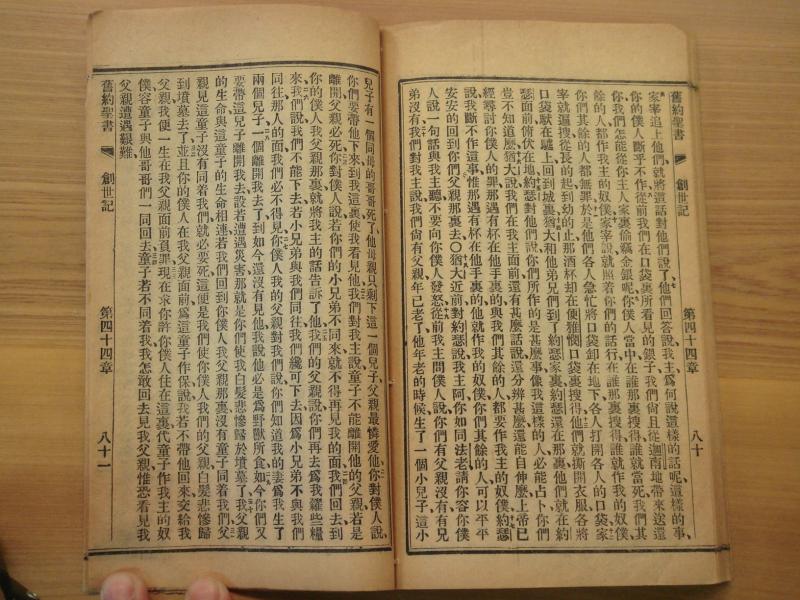 舊約聖書 創世記 第四十四章 八十
家宰追上他們、就將這話對他們說了、他們回答說、我主爲何說這樣的話呢、這樣的事、
你的僕人斷乎不作、從前我們在口袋裏所看見的銀子、我們尙且從迦南地帶來送還
你、我們怎能從你主人家裏偷竊金銀呢、你僕人當中在誰那裏搜得、誰就當死、我們其
餘的人、都作我主的奴僕、家宰說、就照着你們的話行、在誰那裏搜得、誰就作我的奴僕、
你們其餘的人都無罪、於是他們各人急忙將口袋卸在地下、各人打開各人的口袋、家
宰就遍搜、從長的起、到幼的止、那酒杯却在便雅憫口袋裏搜得、他們就撕開衣服、各將
口袋馱在驢上、回到城裏、猶大和他弟兄們到了約瑟家裏、約瑟還在那裏、他們就在約
瑟面前俯伏在地、約瑟對他們說、你們所作的是甚麼事、像我這樣的人必能占卜、你們
豈不知道麼、猶大說、我們在我主面前還有甚麼話說、還分辨甚麼、還能自伸麼、上帝已
經尋討你僕人的罪、那遇有杯在他手裏的、與我們其餘的人、都要作我主的奴僕、約瑟
說、我斷不作這事、惟那遇有杯在他手裏的、他就作我的奴僕、你們其餘的人、可以平平
安安的回到你們父親那裏去、〇猶大近前對約瑟說、我主阿、你如同法老、請你容你僕
人說一句話與我主聽、不要向你僕人發怒、從前我主問僕人說、你們有父親有兄
弟沒有、我們對我主說、我們尙有父親、年已老了、他年老的時候、生了一個小兒子、這小
兒子有一個同母的哥哥死了、他母親只剩下這一個兒子、父親最憐愛他、你對僕人說、
你們要帶他下來到我這裏、使我看見他、我們對我主說、童子不能離開他的父親、若是
離開父親必死、你對僕人說、若你們的小兄弟不同來、就不得再見我的面、我們回去到
你的僕人我父親那裏、就將我主的話告訴了他、我們的父親說、你們再去爲我糴些糧
來、我們說、我們不能下去、若小兄弟與我們同往、我們纔可下去、因爲小兄弟不與我們
同往、那人的面我們必不得見、你僕人我的父親對我們說、你們知道我的妻爲我生了
兩個兒子、一個離開我去了、到如今還沒有見他、我說他必是爲野獸所食、如今你們又
要帶這兒子離開我去、設若遭遇災害、那就是你們使我白髮悲慘歸於墳墓了、我父親
的生命與這童子的生命相連、若我們回到你僕人我父親那裏、沒有童子同着、我們父
親見這童子沒有同着我們、就必要死、這便是我們使你僕人我們的父親白髮悲慘歸
到墳墓去了、並且你的僕人在我父親面前爲這童子作保、說我若不帶他回來交給我
父親、我便一生在我父親面前負罪、現在求你許你僕人住在這裏代童子作我主的奴
僕、容童子與他哥哥們一同回去、童子若不同着我、我怎敢回去見我父親、惟恐看見我
父親遭遇艱難、
舊約聖書 創世記 第四十四章 八十一